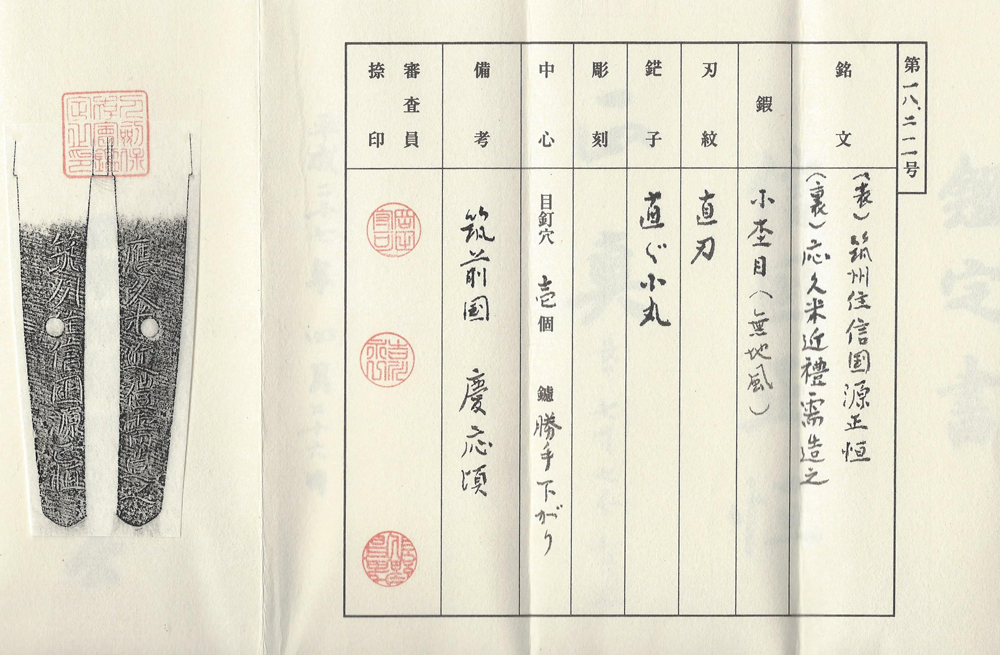 第一八、二一一号
銘文
(表)筑州住信国源正恒
(裏)応久米近禮需造之
鍜
小杢目(無地風)
刃紋
直刃
鋩子
直ぐ小丸
彫刻
中心
目釘穴 壱個 鑢 勝手下がり
備考
筑前国 慶応頃
審査員
捺印
應久米近禮需造之
筑州住信国源正恒